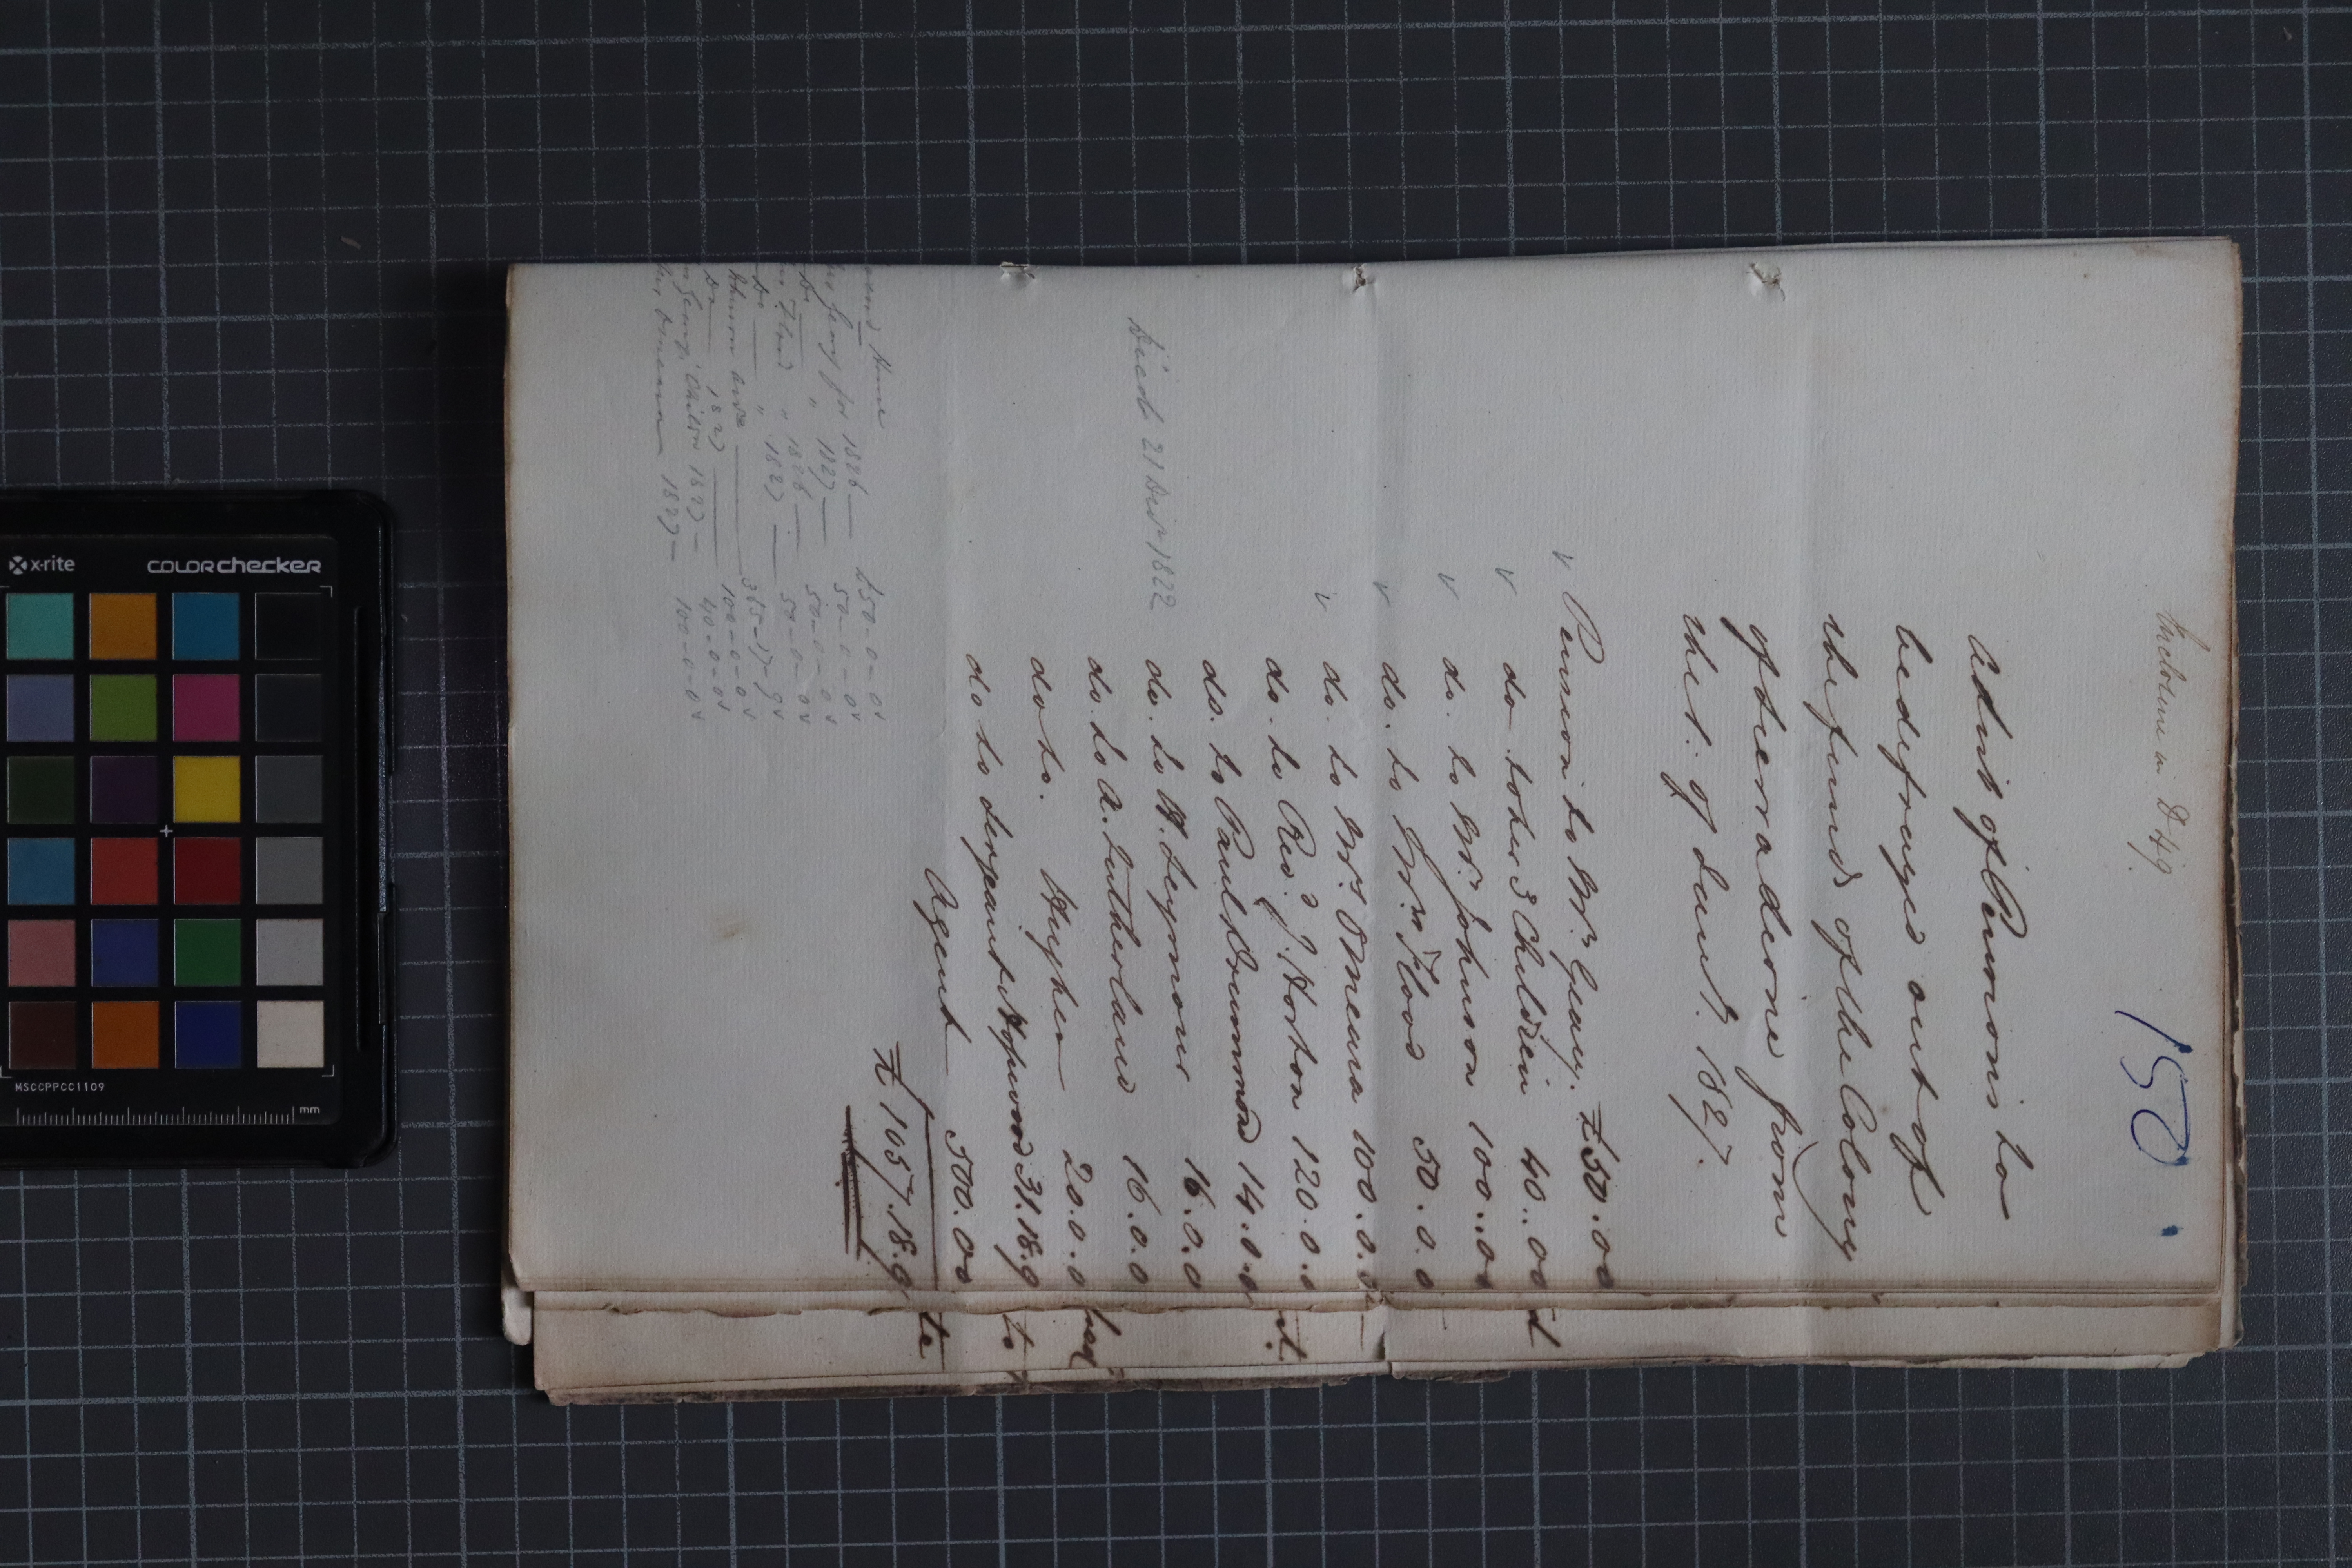 Enclosure in D 49
150.
A List of Pensions to
be defrayed out of
the funds of the Colony
of Sierra Leone from
the 1. of Jany. 1827.
v Pension to Mrs. Geary. £50..0 0
v do to her 3 Children 40..0 0
v do. to Mrs. Johnson 100..0 0
v do. to Mrs. Flood 50.0.0
v do. to Mrs. O'Meara 100.0.0
do. to Revd. J. Horton 120.0.0
do. to Paul Drummond 14.0.0
Died 21 Decr 1822 do. to W. Seymour 16.0.0
do. to A. Sutherland 16.0.0
do to. Hughes 20.0.0
do to Serjeant Hopwood 31.18.9
Agent 500.0 0
£ 1057.18.9
Home
Geary for 1826 — £50 - 0 - 0
Do " 1827 — 50 - 0 - 0
Flood " 1826 — 50 - 0 - 0
Do " 1827 — 50 - 0 - 0
Johnson 365 - 17 - 9
Do 1827 — 100 - 0 - 0
Geary's Children 1827 — 40 - 0 - 0
Mrs O'Meara 1827 — 100 - 0 - 0
x-rite COLORchecker
MSCCPPCC1109
mm